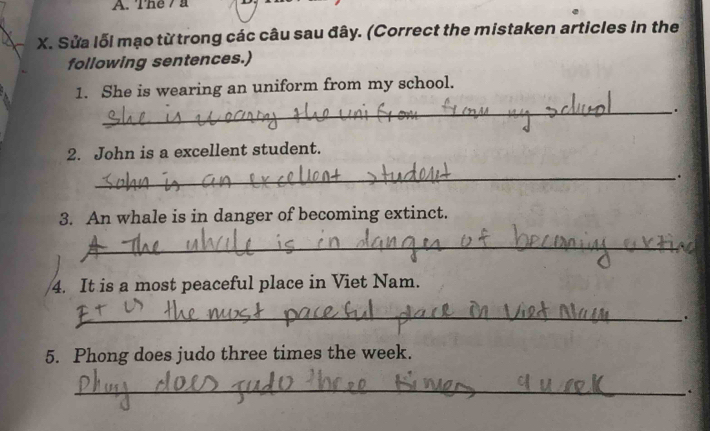 A. The / a
X. Sửa lỗi mạo từ trong các câu sau đây. (Correct the mistaken articles in the
following sentences.)
1. She is wearing an uniform from my school.
She is wearing the unifrom from my school.
2. John is a excellent student.
John is an excellent student.
3. An whale is in danger of becoming extinct.
The whale is in danger of becoming extinc
4. It is a most peaceful place in Viet Nam.
It is the most paceful place in Viet Nam.
5. Phong does judo three times the week.
Phong does judo three times a week.